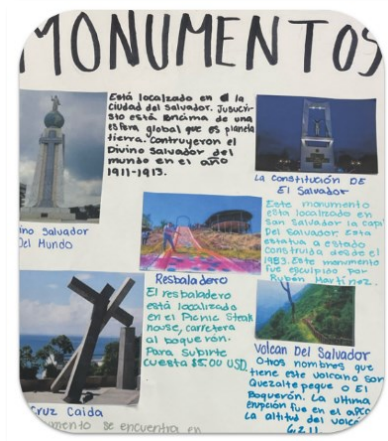 MONUMENTOS
Está localzado en la
ciudad del salvador. Jusucri-
sto está encima de una
esfera global que es planeta
tierra. Contruyeron el
Divino Salvador del
mundo en el año
1911-1913.
ino Salvador
Del Mundo
La constitución DE
El Salvador
Este monumento
esta localizado en
san salvador la capi
Del Salvador Esta
estatua a estado
construida desde el
1983. Este monumento
fue esculpido por
Rubén Martínez.
Resbaladero
El resbaladero
está localizado
en el Picnic Steak
house, carretera
al boquerón.
Para subirte
cuesta $5.00 USD.
Volcan Del Salvador
Otros nombres que
tiene este volcano son
Quezaltepeque o El
Boquerón. La ultima
erupción fue en el
La altitud del volc
6,211
Cruz Caida
mento se encuentra en